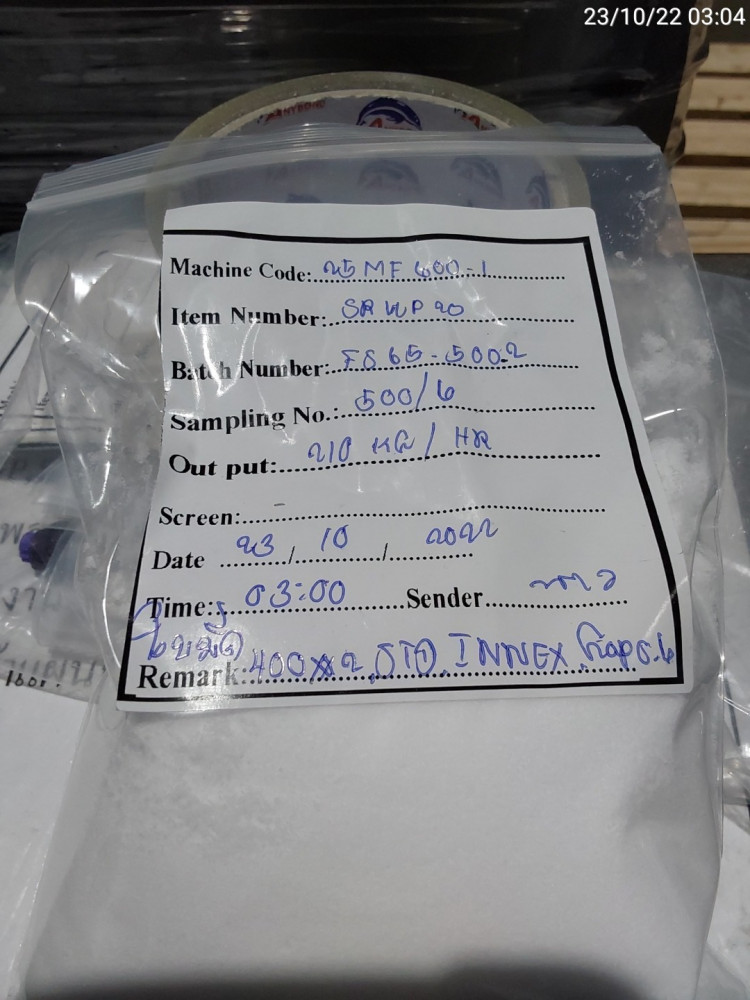 23/10/22 03:04
Machine Code: 25 MF 600-1
Item Number: SR WP 20
Batch Number: FS 65-500-2
Sampling No.: 500/6
Out put: 210 KG/HR
Screen: -
Date 23/10/2022
Time: 03:00 Sender
ใบมีด
Remark: 400x2 STD INNEX 0.6